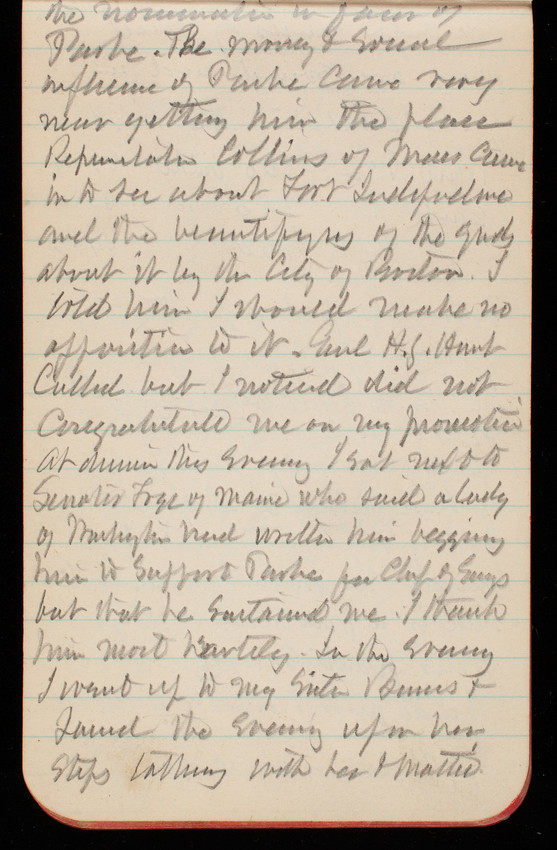 the nomination in favor of
Parke. The money & social
influence of Parke came very
near getting him the place
Representative Collins of Mass came
in to see about Fort Independence
and the beautifying of the grds
about it by the City of Boston. I
told him I should make no
opposition to it. Genl H. J. Hunt
Called but I noticed did not
Congratulate me on my promotion
At dinner this Evening I sat next to
Senator Frye of Maine who said a lady
of Washington had written him begging
him to Support Parke for Chf of Engs
but that he Sustained me. I thank
him most heartily. In the Evening
I went up to my Sister Burns &
the Evening upon her
Steps talking with her & Mattie.